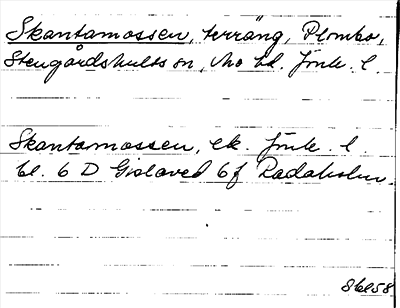 Skantamossen, terräng, Plombo,
Stengårdshults sn, Mo hd. Jönk. l.
Skantamossen, ek. Jönk. l.
bl. 6 D Gislaved 6f Radaholm.